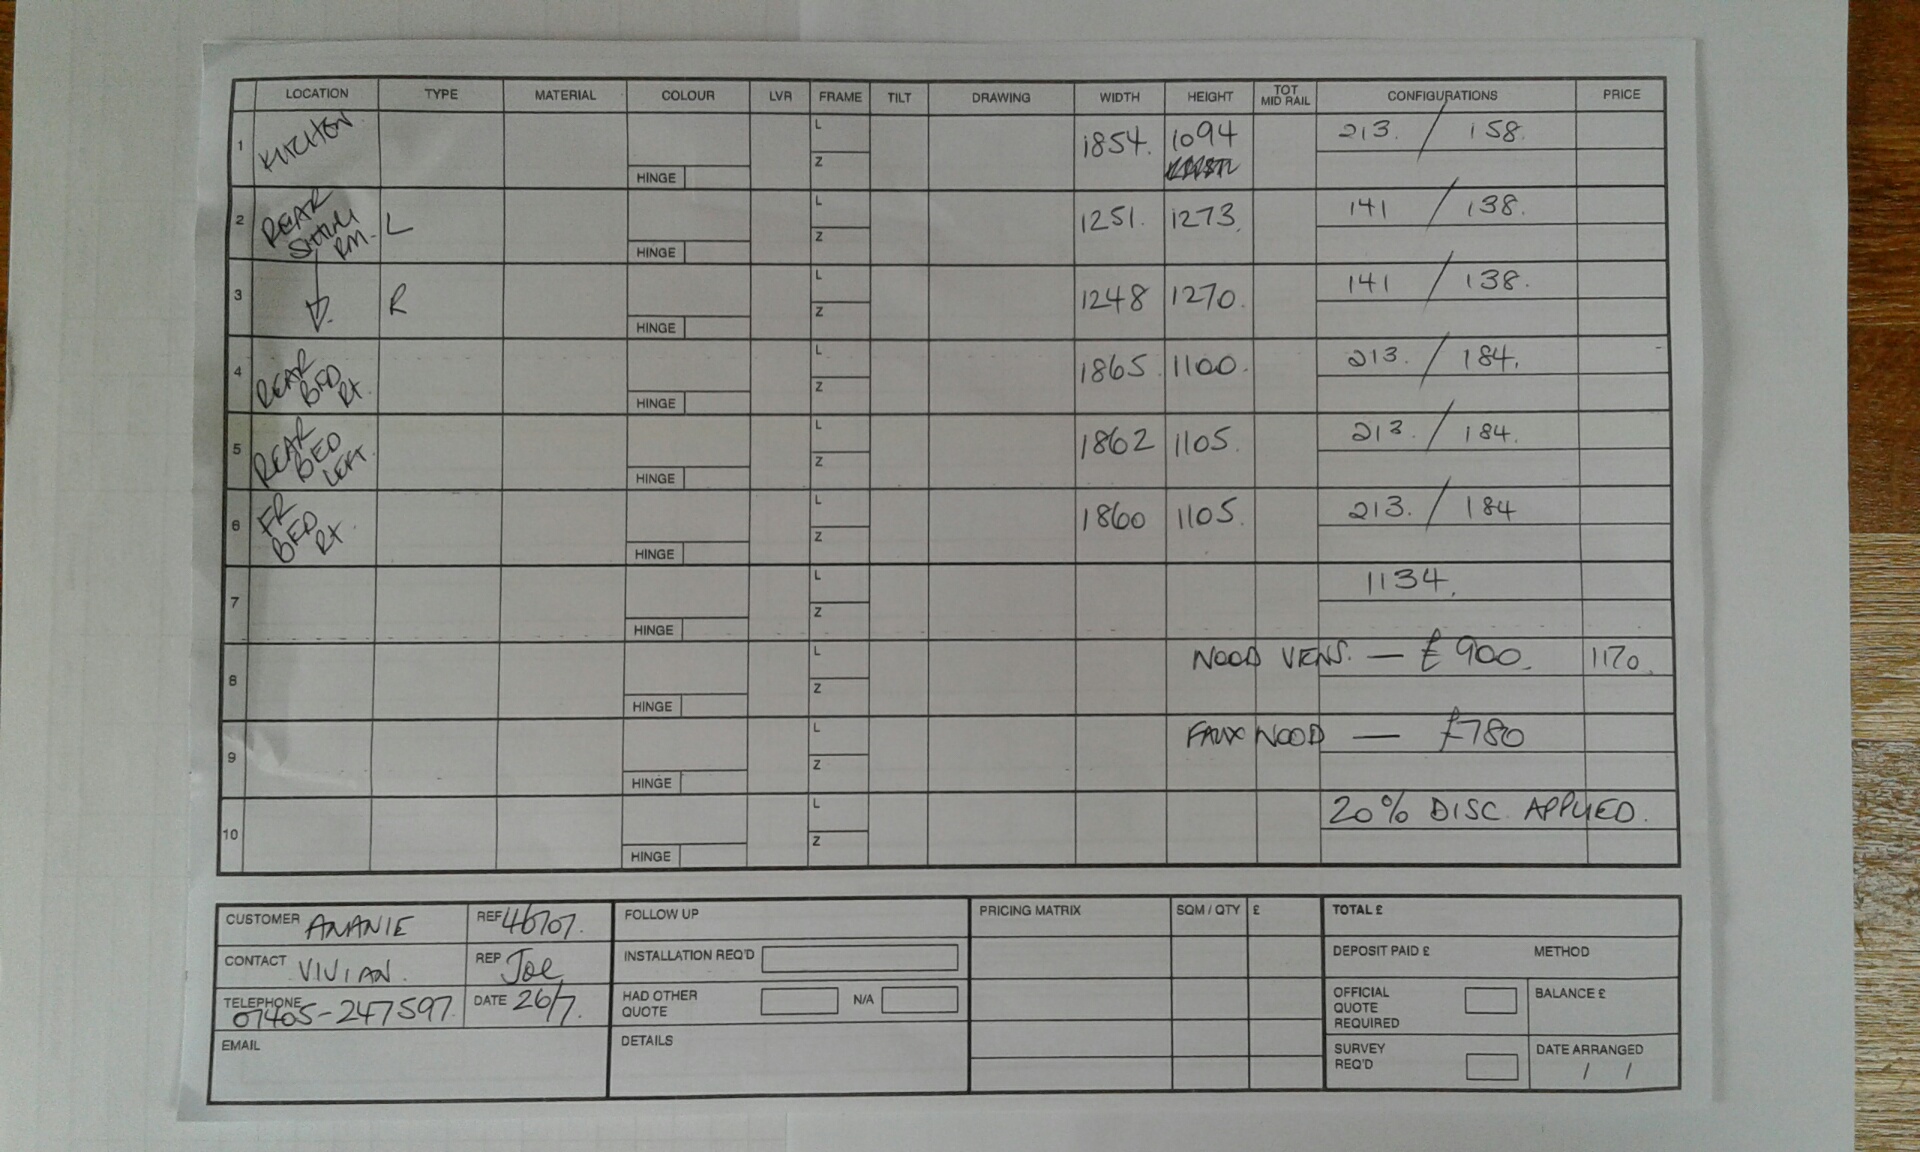 LOCATION TYPE MATERIAL COLOUR LVR FRAME TILT DRAWING WIDTH HEIGHT TOT MID RAIL CONFIGURATIONS PRICE
1 KITCHEN L Z HINGE 1854. 1094 213. / 158.
2 REAR SITTING RM. L L Z HINGE 1251. 1273. 141 / 138.
3 R L Z HINGE 1248 1270. 141 / 138.
4 REAR BED RT. L Z HINGE 1865. 1100. 213. / 184.
5 REAR BED LEFT. L Z HINGE 1862 1105. 213. / 184.
6 FR BED RT. L Z HINGE 1860 1105. 213. / 184
7 L Z HINGE 1134.
8 L Z HINGE WOOD VENS. — £900. 1170.
9 L Z HINGE FAUX WOOD — £780
10 L Z HINGE 20% DISC. APPLIED.
CUSTOMER ANANIE REF 46707.
CONTACT VIVIAN. REP Joe
TELEPHONE 07405-247597. DATE 26/7.
EMAIL
FOLLOW UP
INSTALLATION REQ'D
HAD OTHER QUOTE N/A
DETAILS
PRICING MATRIX SQM / QTY £
TOTAL £
DEPOSIT PAID £ METHOD
OFFICIAL QUOTE REQUIRED BALANCE £
SURVEY REQ'D DATE ARRANGED / /